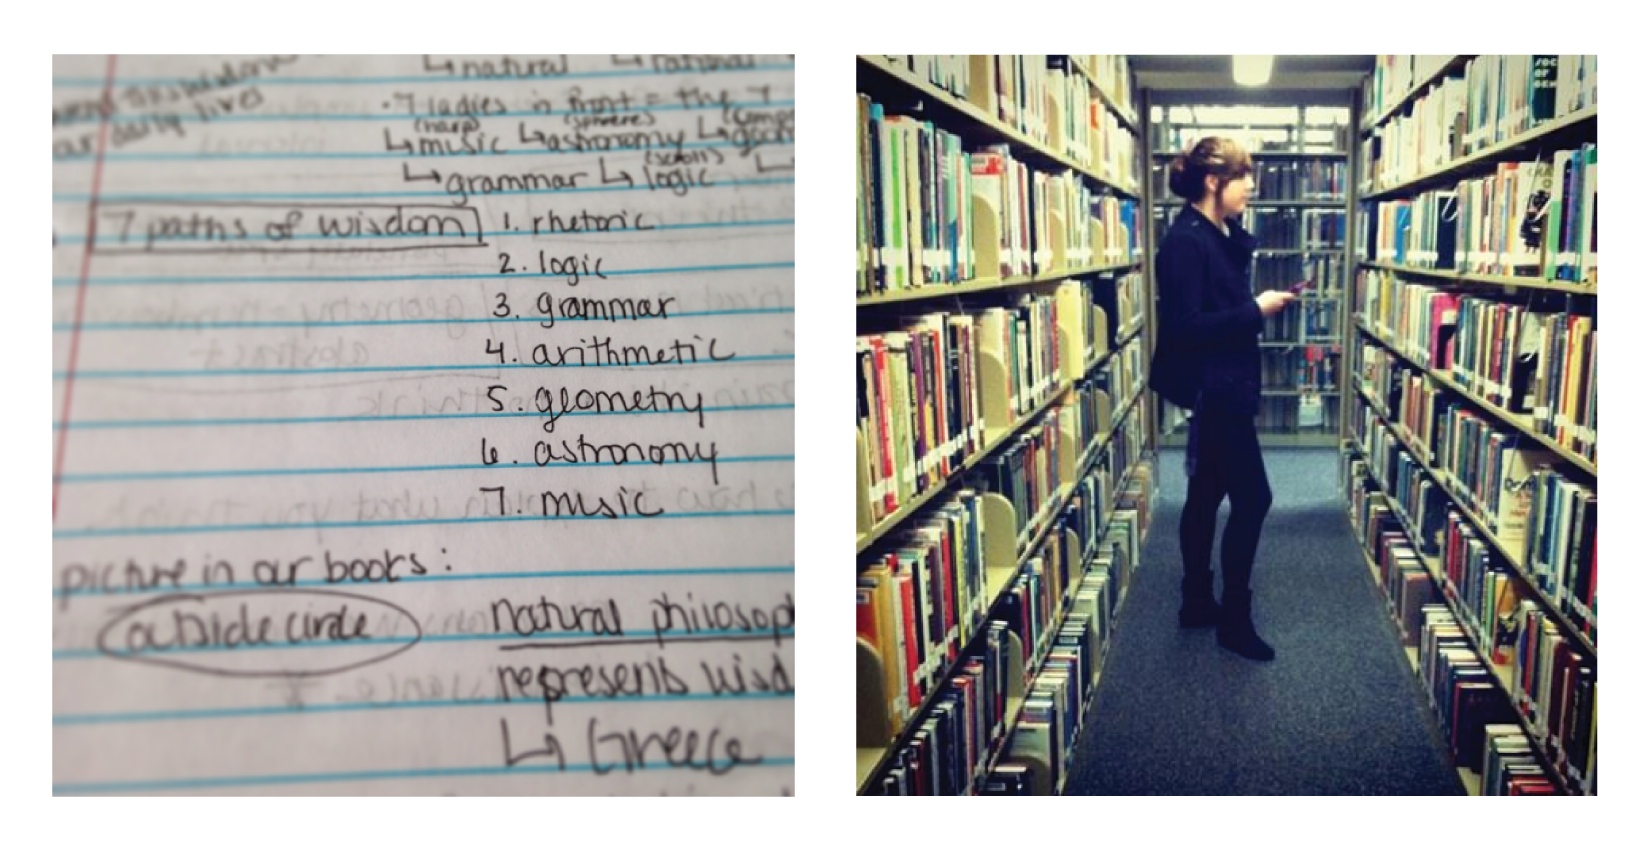 our daily lives
↳ natural ↳ rational
· 7 ladies in front = the 7
(harp) (sphere)
↳ music ↳ astronomy ↳
(scroll)
↳ grammar ↳ logic ↳
7 paths of wisdom 1. rhetoric
2. logic
3. grammar
4. arithmetic
5. geometry
6. astronomy
7. music
picture in our books:
outside circle natural philosop
represents wisd
↳ Greece